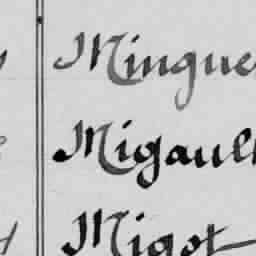 Mingue
Migaul
Migot